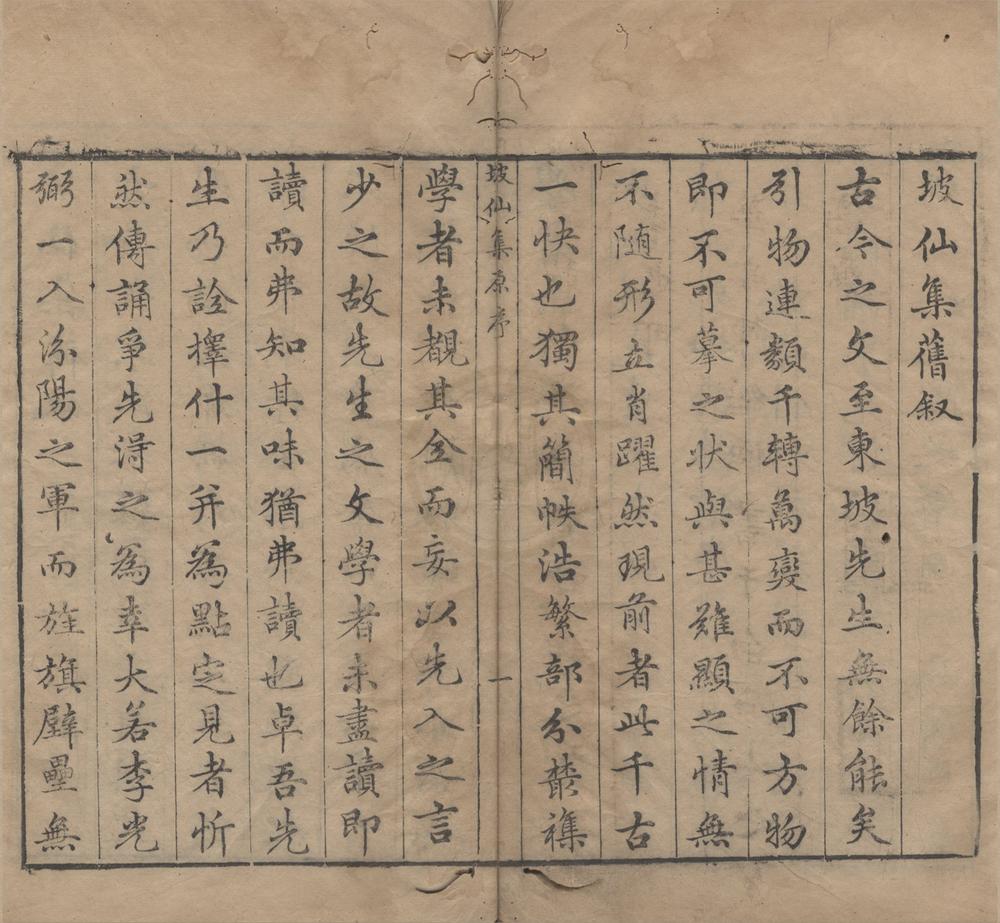 坡仙集舊叙
古今之文至東坡先生無餘能矣
引物連纇千轉萬變而不可方物
即不可摹之狀與甚難顯之情無
不随形立肖躍然現前者此千古
一快也獨其簡帙浩繁部分叢襍
坡仙集原序
一
學者未覩其全而妄以先入之言
少之故先生之文學者未盡讀即
讀而弗知其味猶弗讀也卓吾先
生乃詮擇什一并為點定見者忻
然傳誦爭先得之為幸大若李光
弼一入汾陽之軍而旌旗壁壘無